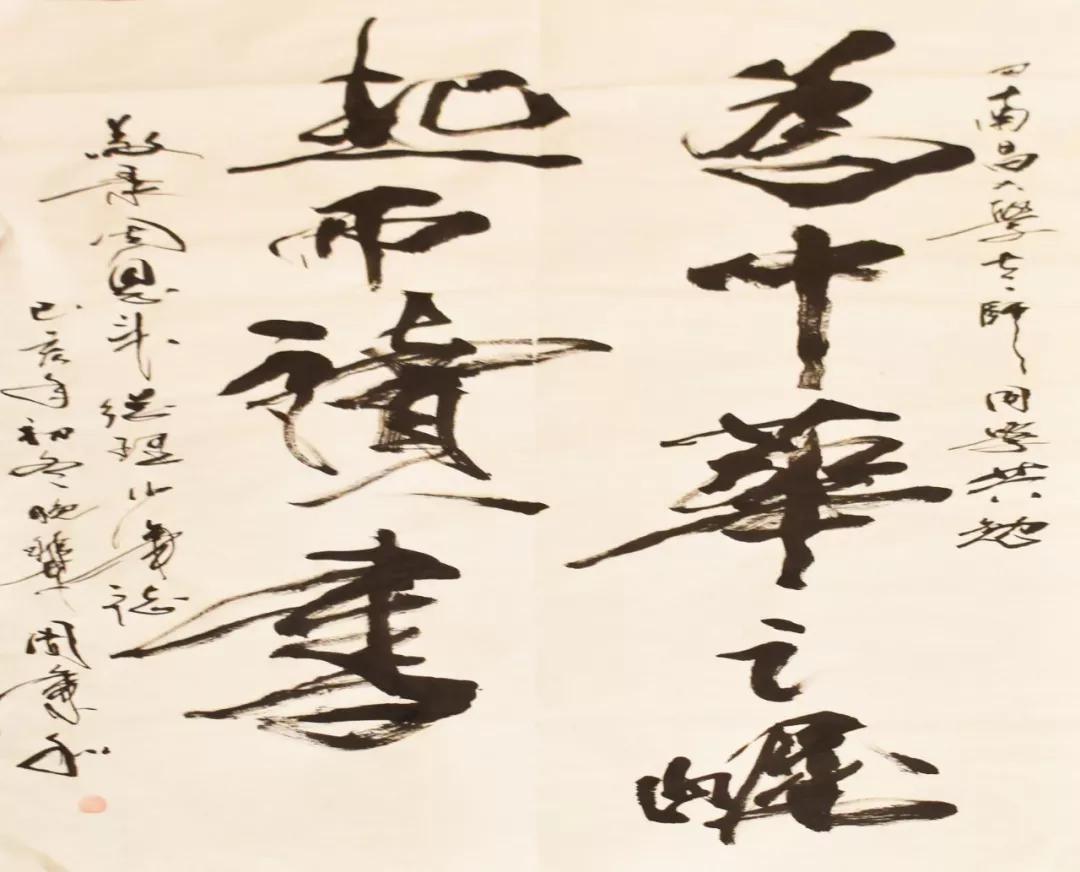 与南昌大學老師同學共勉
為中華之崛
起而讀書
敬录周恩来總理少年誌
己亥年初冬晚輩周秉和